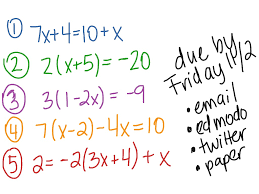 ① 7x+4=10+x
② 2(x+5)=-20
③ 3(1-2x)=-9
④ 7(x-2)-4x=10
⑤ 2=-2(3x+4)+x
due by
Friday 11/2
• email
• edmodo
• twitter
• paper